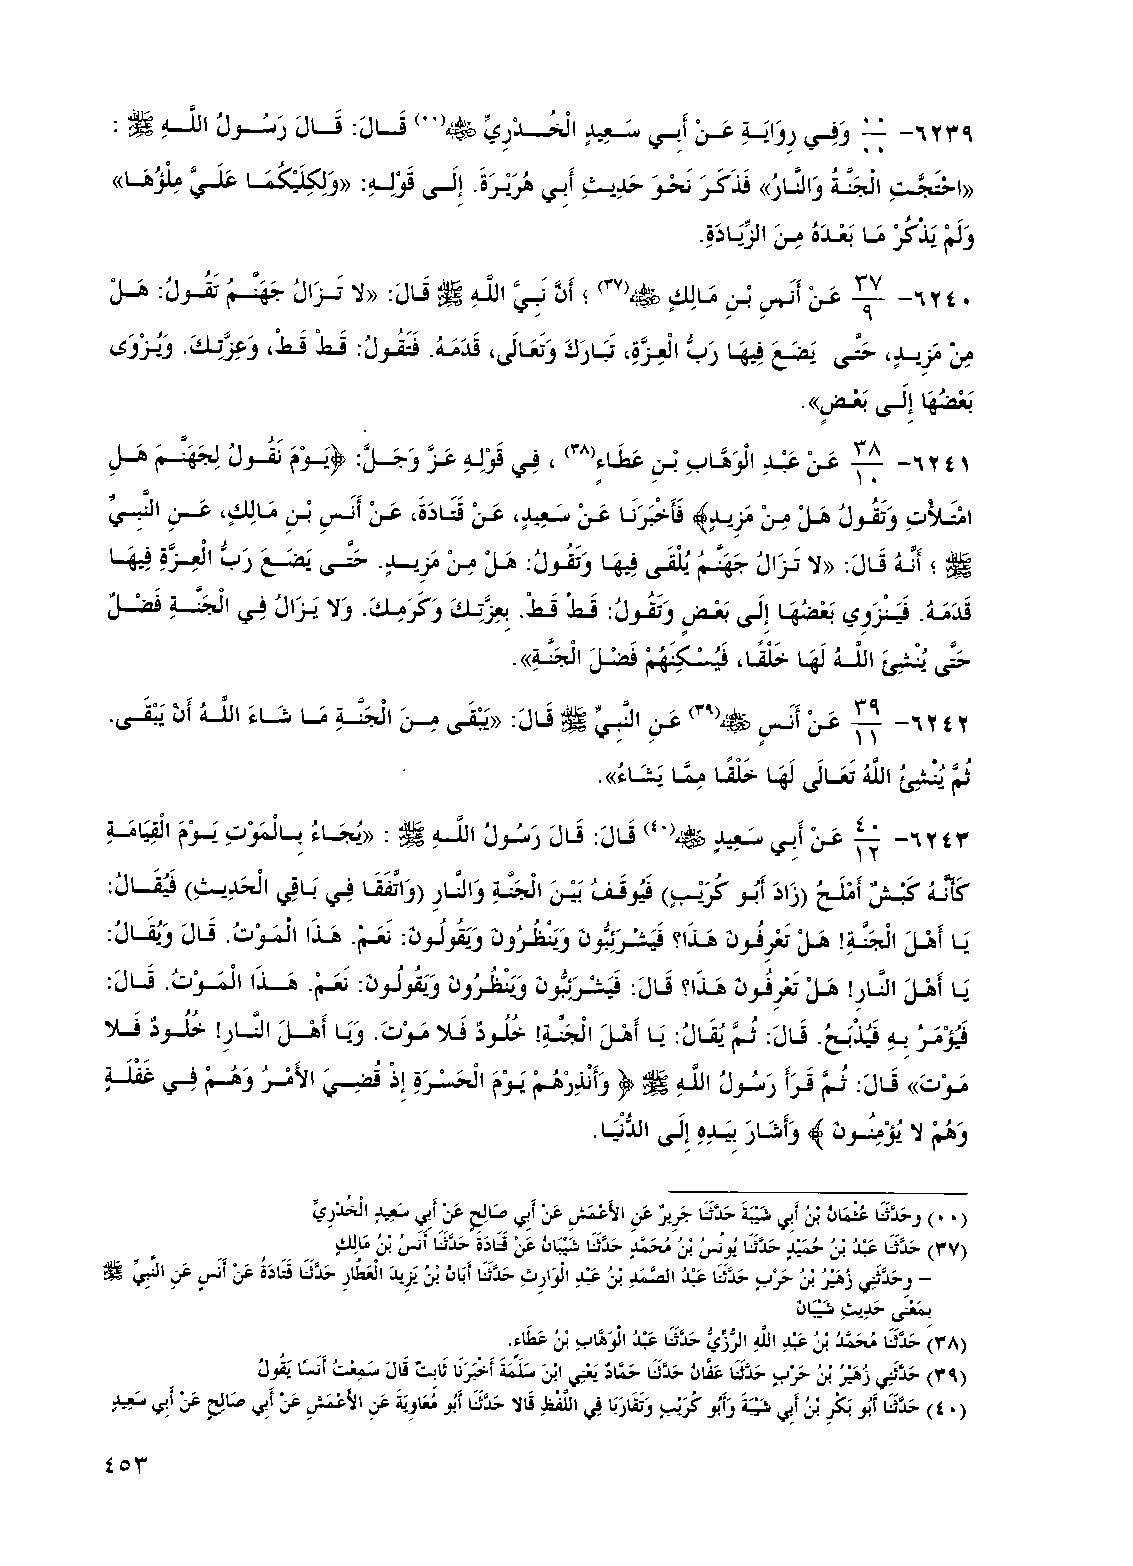 ٦٢٣٩- ٠٠/٠٠ وَفِي رِوَايَةِ عَنْ أَبِي سَعِيدٍ الْخُدْرِيِّ ﷺ(٠٠) قَالَ: قَالَ رَسُولُ اللَّهِ ﷺ :
«احْتَجَّتِ الْجَنَّةُ وَالنَّارُ» فَذَكَرَ نَحْوَ حَدِيثِ أَبِي هُرَيْرَةَ. إِلَى قَوْلِهِ: «وَلِكِلَيْكُمَا عَلَيَّ مِلْؤُهَا»
وَلَمْ يَذْكُرْ مَا بَعْدَهُ مِنَ الزِّيَادَةِ.
٦٢٤٠- ٣٧/٩ عَنْ أَنَسِ بْنِ مَالِكٍ ﷺ(٣٧) ؛ أَنَّ نَبِيَّ اللَّهِ ﷺ قَالَ: «لا تَزَالُ جَهَنَّمُ تَقُولُ: هَلْ
مِنْ مَزِيدٍ، حَتَّى يَضَعَ فِيهَا رَبُّ الْعِزَّةِ، تَبَارَكَ وَتَعَالَى، قَدَمَهُ. فَتَقُولُ: قَطْ قَطْ، وَعِزَّتِكَ. وَيُزْوَى
بَعْضُهَا إِلَى بَعْضٍ».
٦٢٤١- ٣٨/١٠ عَنْ عَبْدِ الْوَهَّابِ بْنِ عَطَاءٍ(٣٨) ، فِي قَوْلِهِ عَزَّ وَجَلَّ: ﴿يَوْمَ نَقُولُ لِجَهَنَّمَ هَلِ
امْتَلأْتِ وَتَقُولُ هَلْ مِنْ مَزِيدٍ﴾ فَأَخْبَرَنَا عَنْ سَعِيدٍ، عَنْ قَتَادَةَ، عَنْ أَنَسِ بْنِ مَالِكٍ، عَنِ النَّبِيِّ
ﷺ ؛ أَنَّهُ قَالَ: «لا تَزَالُ جَهَنَّمُ يُلْقَى فِيهَا وَتَقُولُ: هَلْ مِنْ مَزِيدٍ. حَتَّى يَضَعَ رَبُّ الْعِزَّةِ فِيهَا
قَدَمَهُ. فَيَنْزَوِي بَعْضُهَا إِلَى بَعْضٍ وَتَقُولُ: قَطْ قَطْ. بِعِزَّتِكَ وَكَرَمِكَ. وَلا يَزَالُ فِي الْجَنَّةِ فَضْلٌ
حَتَّى يُنْشِئَ اللَّهُ لَهَا خَلْقًا، فَيُسْكِنَهُمْ فَضْلَ الْجَنَّةِ».
٦٢٤٢- ٣٩/١١ عَنْ أَنَسٍ ﷺ(٣٩) عَنِ النَّبِيِّ ﷺ قَالَ: «يَبْقَى مِنَ الْجَنَّةِ مَا شَاءَ اللَّهُ أَنْ يَبْقَى.
ثُمَّ يُنْشِئُ اللَّهُ تَعَالَى لَهَا خَلْقًا مِمَّا يَشَاءُ».
٦٢٤٣- ٤٠/١٢ عَنْ أَبِي سَعِيدٍ ﷺ(٤٠) قَالَ: قَالَ رَسُولُ اللَّهِ ﷺ : «يُجَاءُ بِالْمَوْتِ يَوْمَ الْقِيَامَةِ
كَأَنَّهُ كَبْشٌ أَمْلَحُ (زَادَ أَبُو كُرَيْبٍ) فَيُوقَفُ بَيْنَ الْجَنَّةِ وَالنَّارِ (وَاتَّفَقَا فِي بَاقِي الْحَدِيثِ) فَيُقَالُ:
يَا أَهْلَ الْجَنَّةِ! هَلْ تَعْرِفُونَ هَذَا؟ فَيَشْرَئِبُّونَ وَيَنْظُرُونَ وَيَقُولُونَ: نَعَمْ. هَذَا الْمَوْتُ. قَالَ وَيُقَالُ:
يَا أَهْلَ النَّارِ! هَلْ تَعْرِفُونَ هَذَا؟ قَالَ: فَيَشْرَئِبُّونَ وَيَنْظُرُونَ وَيَقُولُونَ: نَعَمْ. هَذَا الْمَوْتُ. قَالَ:
فَيُؤْمَرُ بِهِ فَيُذْبَحُ. قَالَ: ثُمَّ يُقَالُ: يَا أَهْلَ الْجَنَّةِ! خُلُودٌ فَلا مَوْتَ. وَيَا أَهْلَ النَّارِ! خُلُودٌ فَلا
مَوْتَ» قَالَ: ثُمَّ قَرَأَ رَسُولُ اللَّهِ ﷺ ﴿ وَأَنْذِرْهُمْ يَوْمَ الْحَسْرَةِ إِذْ قُضِيَ الأَمْرُ وَهُمْ فِي غَفْلَةٍ
وَهُمْ لا يُؤْمِنُونَ ﴾ وَأَشَارَ بِيَدِهِ إِلَى الدُّنْيَا.
(٠٠) وحَدَّثَنَا عُثْمَانُ بْنُ أَبِي شَيْبَةَ حَدَّثَنَا جَرِيرٌ عَنِ الأَعْمَشِ عَنْ أَبِي صَالِحٍ عَنْ أَبِي سَعِيدٍ الْخُدْرِيِّ
(٣٧) حَدَّثَنَا عَبْدُ بْنُ حُمَيْدٍ حَدَّثَنَا يُونُسُ بْنُ مُحَمَّدٍ حَدَّثَنَا شَيْبَانُ عَنْ قَتَادَةَ حَدَّثَنَا أَنَسُ بْنُ مَالِكٍ
– وحَدَّثَنِي زُهَيْرُ بْنُ حَرْبٍ حَدَّثَنَا عَبْدُ الصَّمَدِ بْنُ عَبْدِ الْوَارِثِ حَدَّثَنَا أَبَانُ بْنُ يَزِيدَ الْعَطَّارِ حَدَّثَنَا قَتَادَةُ عَنْ أَنَسٍ عَنِ النَّبِيِّ ﷺ
بِمَعْنَى حَدِيثِ شَيْبَانَ
(٣٨) حَدَّثَنَا مُحَمَّدُ بْنُ عَبْدِ اللَّهِ الرُّزِّيُّ حَدَّثَنَا عَبْدُ الْوَهَّابِ بْنُ عَطَاءٍ.
(٣٩) حَدَّثَنِي زُهَيْرُ بْنُ حَرْبٍ حَدَّثَنَا عَفَّانُ حَدَّثَنَا حَمَّادٌ يَعْنِي ابْنَ سَلَمَةَ أَخْبَرَنَا ثَابِتٌ قَالَ سَمِعْتُ أَنَسًا يَقُولُ
(٤٠) حَدَّثَنَا أَبُو بَكْرِ بْنُ أَبِي شَيْبَةَ وَأَبُو كُرَيْبٍ وَتَقَارَبَا فِي اللَّفْظِ قَالا حَدَّثَنَا أَبُو مُعَاوِيَةَ عَنِ الأَعْمَشِ عَنْ أَبِي صَالِحٍ عَنْ أَبِي سَعِيدٍ
٤٥٣